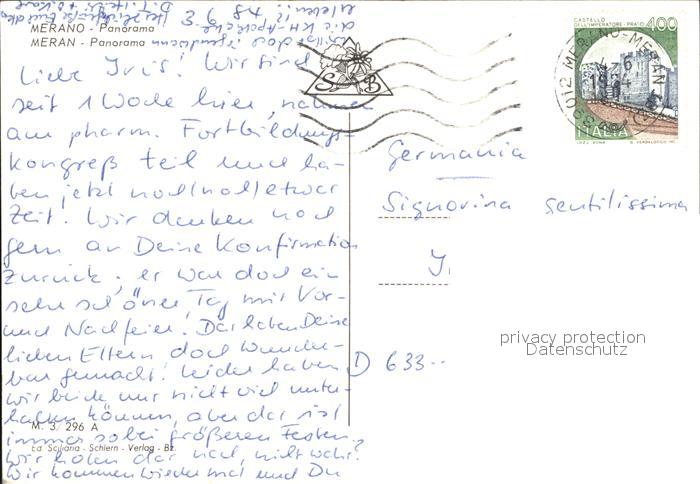 MERANO - Panorama
MERAN - Panorama
Liebe Iris! Wir sind
seit 1 Woche hier, nahmen
am pharm. Fortbildungs-
kongreß teil und ha-
ben jetzt noch (noch) etwas
Zeit. Wir denken noch
gern an Deine Konfirmation
zurück, es war doch ein
sehr schöner Tag mit Vor-
und Nachfeier. Das haben Deine
lieben Eltern doch wunder-
bar gemacht! Leider haben
wir beide uns nicht viel unter-
halten können, aber das ist
immer so bei größeren Festen.
Wir holen das nach, nicht wahr?
Wir kommen wieder mal und Du
M. 3/296 A
Ed. Sciliaria - Schlern - Verlag - Bz.
S B
CASTELLO
DELL'IMPERATORE - PRATO
400
ITALIA
39012 MERANO-MERAN
Germania
Signorina gentilissima
I
D 633--
privacy protection
Datenschutz